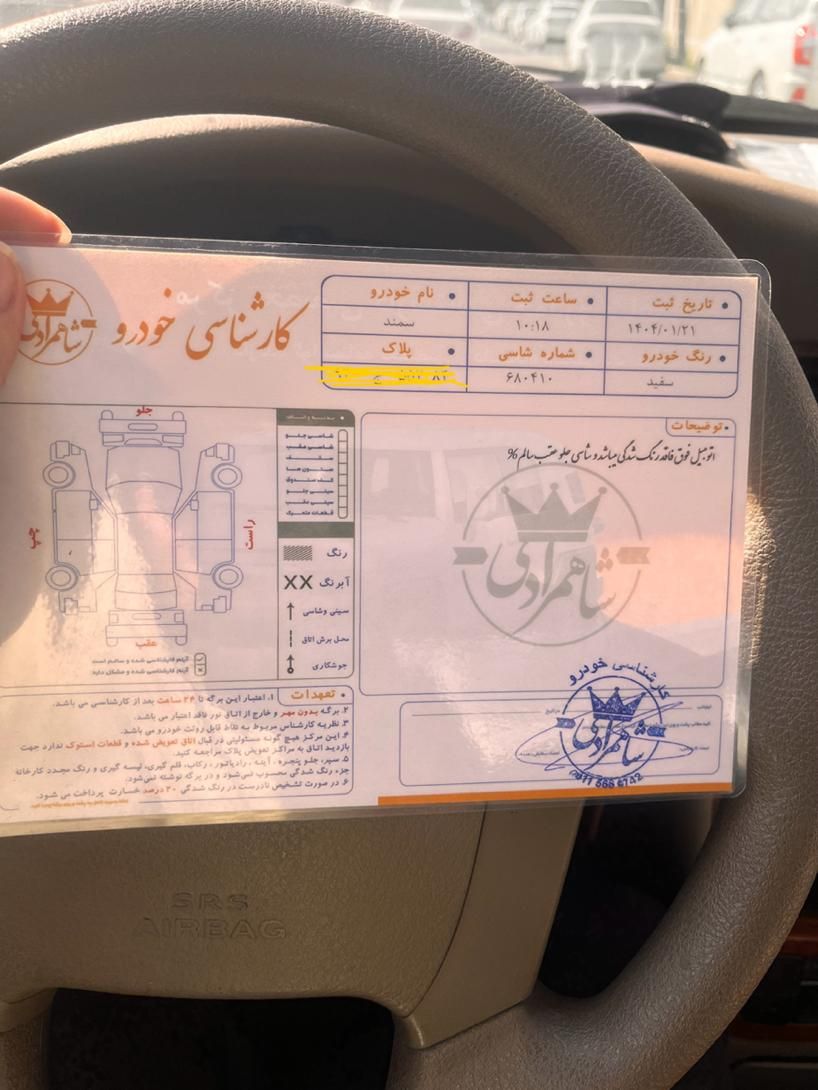 شاهمرادی
کارشناسی خودرو
تاریخ ثبت
ساعت ثبت
نام خودرو
۱۴۰۴/۰۱/۲۱
۱۰:۱۸
سمند
رنگ خودرو
شماره شاسی
پلاک
سفید
۶۸۰۴۱۰
توضیحات
اتومبیل فوق فاقد رنگ شدگی میباشد و شاسی جلو عقب سالم %
شاهمرادی
جلو
راست
چپ
عقب
شاسی جلو
شاسی عقب
سقف
ستون ها
کف صندوق
سینی جلو
سینی عقب
قطعات متحرک
رنگ
آبرنگ XX
سینی وشاسی
محل برش اتاق
جوشکاری
آیتم کارشناسی شده و سالم است
آیتم کارشناسی شده و مشکل دارد
تعهدات
۱. اعتبار این برگه تا ۲۴ ساعت بعد از کارشناسی می باشد.
۲. برگه بدون مهر و خارج از اتاق نور فاقد اعتبار می باشد.
۳. نظریه کارشناس مربوط به نقاط قابل رویت خودرو می باشد.
۴. این مرکز هیچ گونه مسئولیتی در قبال اتاق تعویض شده و قطعات استوک ندارد جهت
بازدید اتاق به مراکز تعویض پلاک مراجعه کنید.
۵. سپر، جلو پنجره، آینه، رادیاتور، رکاب، قلم گیری، لیسه گیری و رنگ مجدد کارخانه
جزء رنگ شدگی محسوب نمی‌شود و در برگه نوشته نمی‌شود.
۶. در صورت تشخیص نادرست در رنگ شدگی ۲۰ درصد خسارت پرداخت می شود.
کارشناسی خودرو
شاهمرادی
SRS
AIRBAG